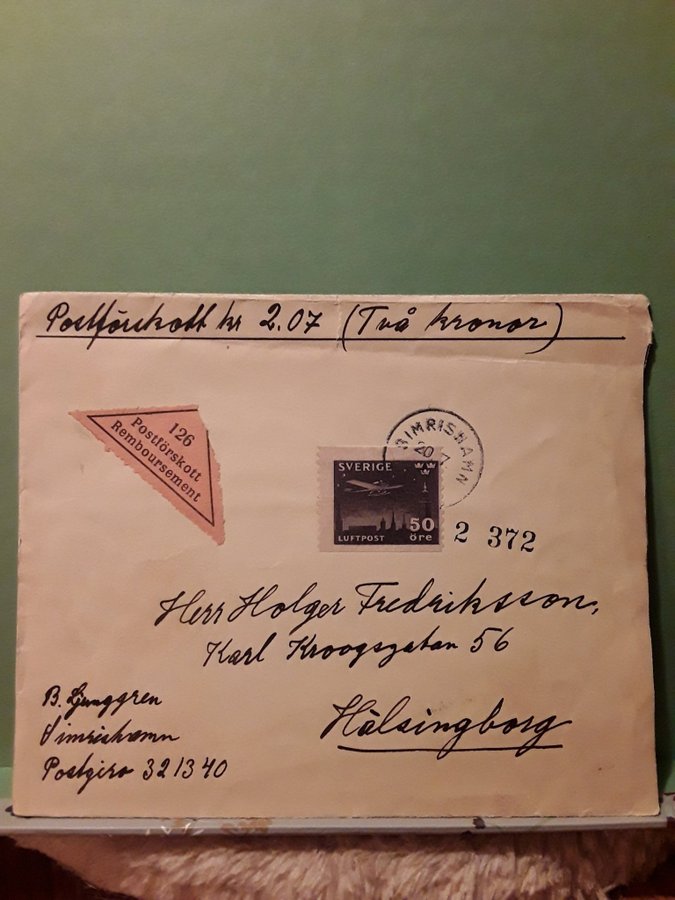 Postförskott kr 2.07 (Två kronor)
126
Postförskott
Remboursement
SIMRISHAMN
20
SVERIGE
50
öre
LUFTPOST
2 372
Herr Holger Fredriksson,
Karl Kroogsgatan 56
Hälsingborg
B. Ljunggren
Simrishamn
Postgiro 321340